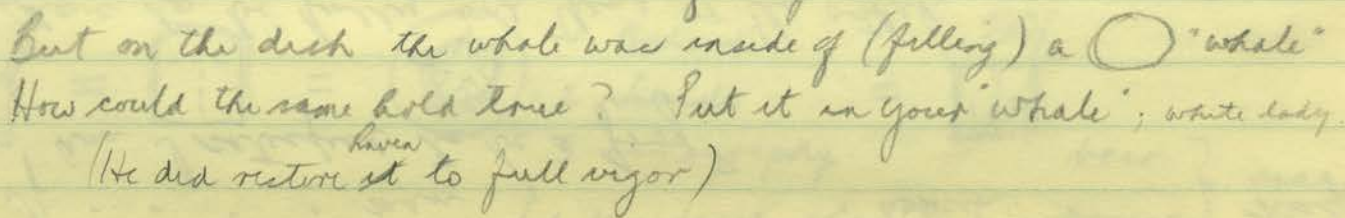 But on the dish the whale was inside of (filling) a "whale"
How could the same hold true? Put it in your "whale"; white lady.
raven
(He did restore it to full vigor)